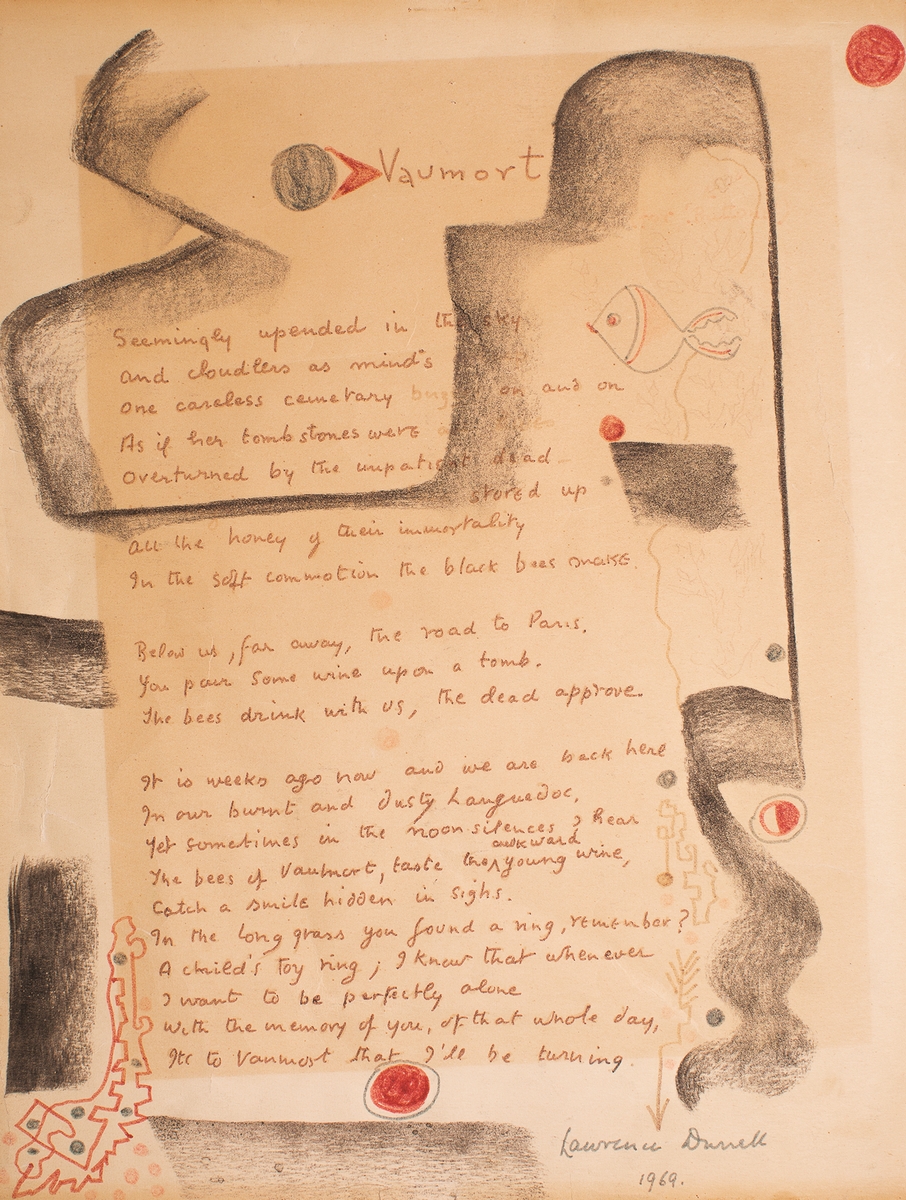 Vaumort
Seemingly upended in the sky
and cloudless as mind's
One careless cemetary on and on
As if her tombstones were
Overturned by the impatient dead
stored up
All the honey of their immortality
In the soft commotion the black bees make.
Below us, far away, the road to Paris.
You pour some wine upon a tomb.
The bees drink with us, the dead approve.
It is weeks ago now and we are back here
In our burnt and dusty Languedoc,
Yet sometimes in the noon silences I hear
The bees of Vaumort, taste the awkward young wine,
Catch a smile hidden in sighs.
In the long grass you found a ring, remember?
A child's toy ring; I know that whenever
I want to be perfectly alone
With the memory of you, of that whole day,
to Vaumort that I'll be turning.
Lawrence Durrell
1969.